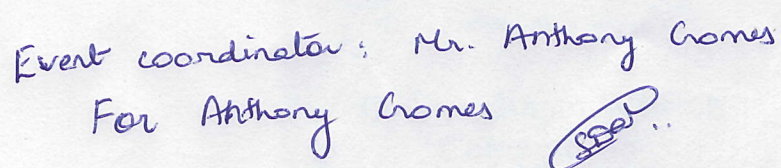 Event coordinator: Mr. Anthony Cromes
For Anthony Cromes